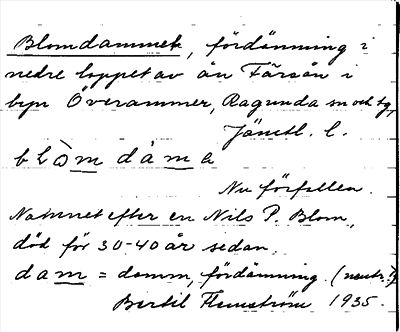 Blomdammen, fördämning i
nedre loppet av ån Färsån i
byn Överammer, Ragunda sn och tg,
Jämtl. l.
blòm dàma
Nu förfallen.
Namnet efter en Nils P. Blom,
död för 30-40 år sedan.
dam = damm, fördämning. (neutr.?)
Bertil Flemström 1935.